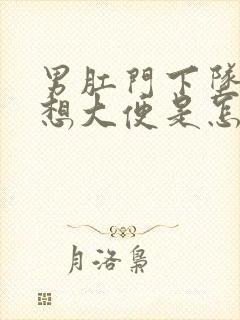 男肛門下墜
想大便是怎
月洛梟